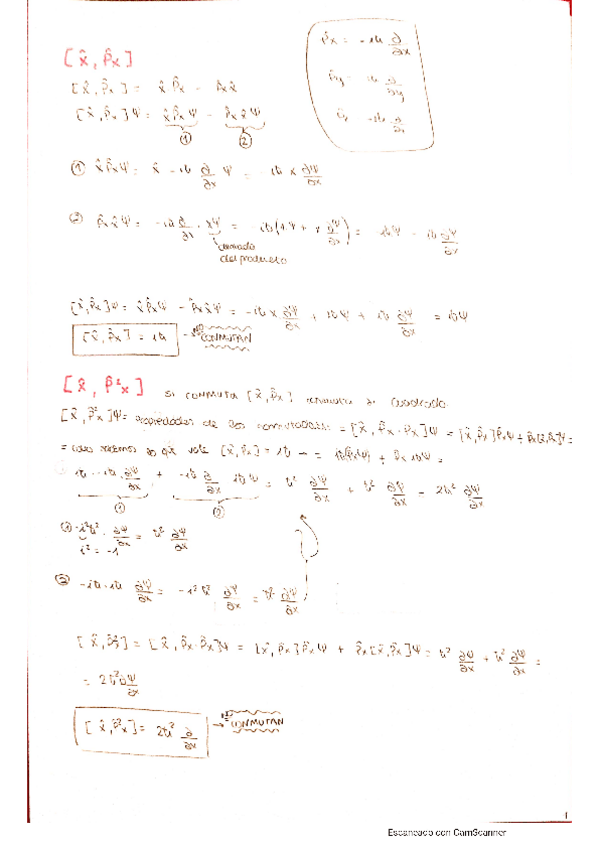 [x̂, p̂x]
p̂x = -iħ ∂/∂x
p̂y = -iħ ∂/∂y
-iħ ∂/∂z
[x̂, p̂x] = x̂ p̂x - p̂x x̂
[x̂, p̂x]Ψ = x̂p̂xΨ - p̂x x̂Ψ
① ②
① x̂p̂xΨ = x̂ · -iħ ∂/∂x Ψ = -iħ x ∂Ψ/∂x
② p̂x x̂Ψ = -iħ ∂/∂x · xΨ = -iħ(1·Ψ + x ∂Ψ/∂x) = -iħΨ - iħ ∂Ψ/∂x
derivada
del producto
[x̂, p̂x]Ψ = x̂p̂xΨ - p̂x x̂Ψ = -iħ x ∂Ψ/∂x + iħΨ + iħ ∂Ψ/∂x = iħΨ
[x̂, p̂x] = iħ → NO CONMUTAN
[x̂, p̂²x] si conmuta [x̂, p̂x] conmuta al cuadrado
[x̂, p̂²x]Ψ = propiedades de los conmutadores = [x̂, p̂x · p̂x]Ψ = [x̂, p̂x]p̂xΨ + p̂x[x̂, p̂x]Ψ =
= como sabemos lo que vale [x̂, p̂x] = iħ → = iħ(p̂xΨ) + p̂x iħΨ =
iħ · -iħ · ∂Ψ/∂x + -iħ ∂/∂x iħΨ = ħ² ∂Ψ/∂x + ħ² ∂Ψ/∂x = 2ħ² ∂Ψ/∂x
① ②
① -i²ħ² · ∂Ψ/∂x = ħ² ∂Ψ/∂x
i² = -1
② -iħ · iħ ∂Ψ/∂x = -i²ħ² ∂Ψ/∂x = ħ² ∂Ψ/∂x
[x̂, p̂²x] = [x̂, p̂x · p̂x]Ψ = [x̂, p̂x]p̂xΨ + p̂x[x̂, p̂x]Ψ = ħ² ∂Ψ/∂x + ħ² ∂Ψ/∂x =
= 2ħ² ∂Ψ/∂x
[x̂, p̂²x] = 2ħ² ∂/∂x → NO CONMUTAN
1
Escaneado con CamScanner